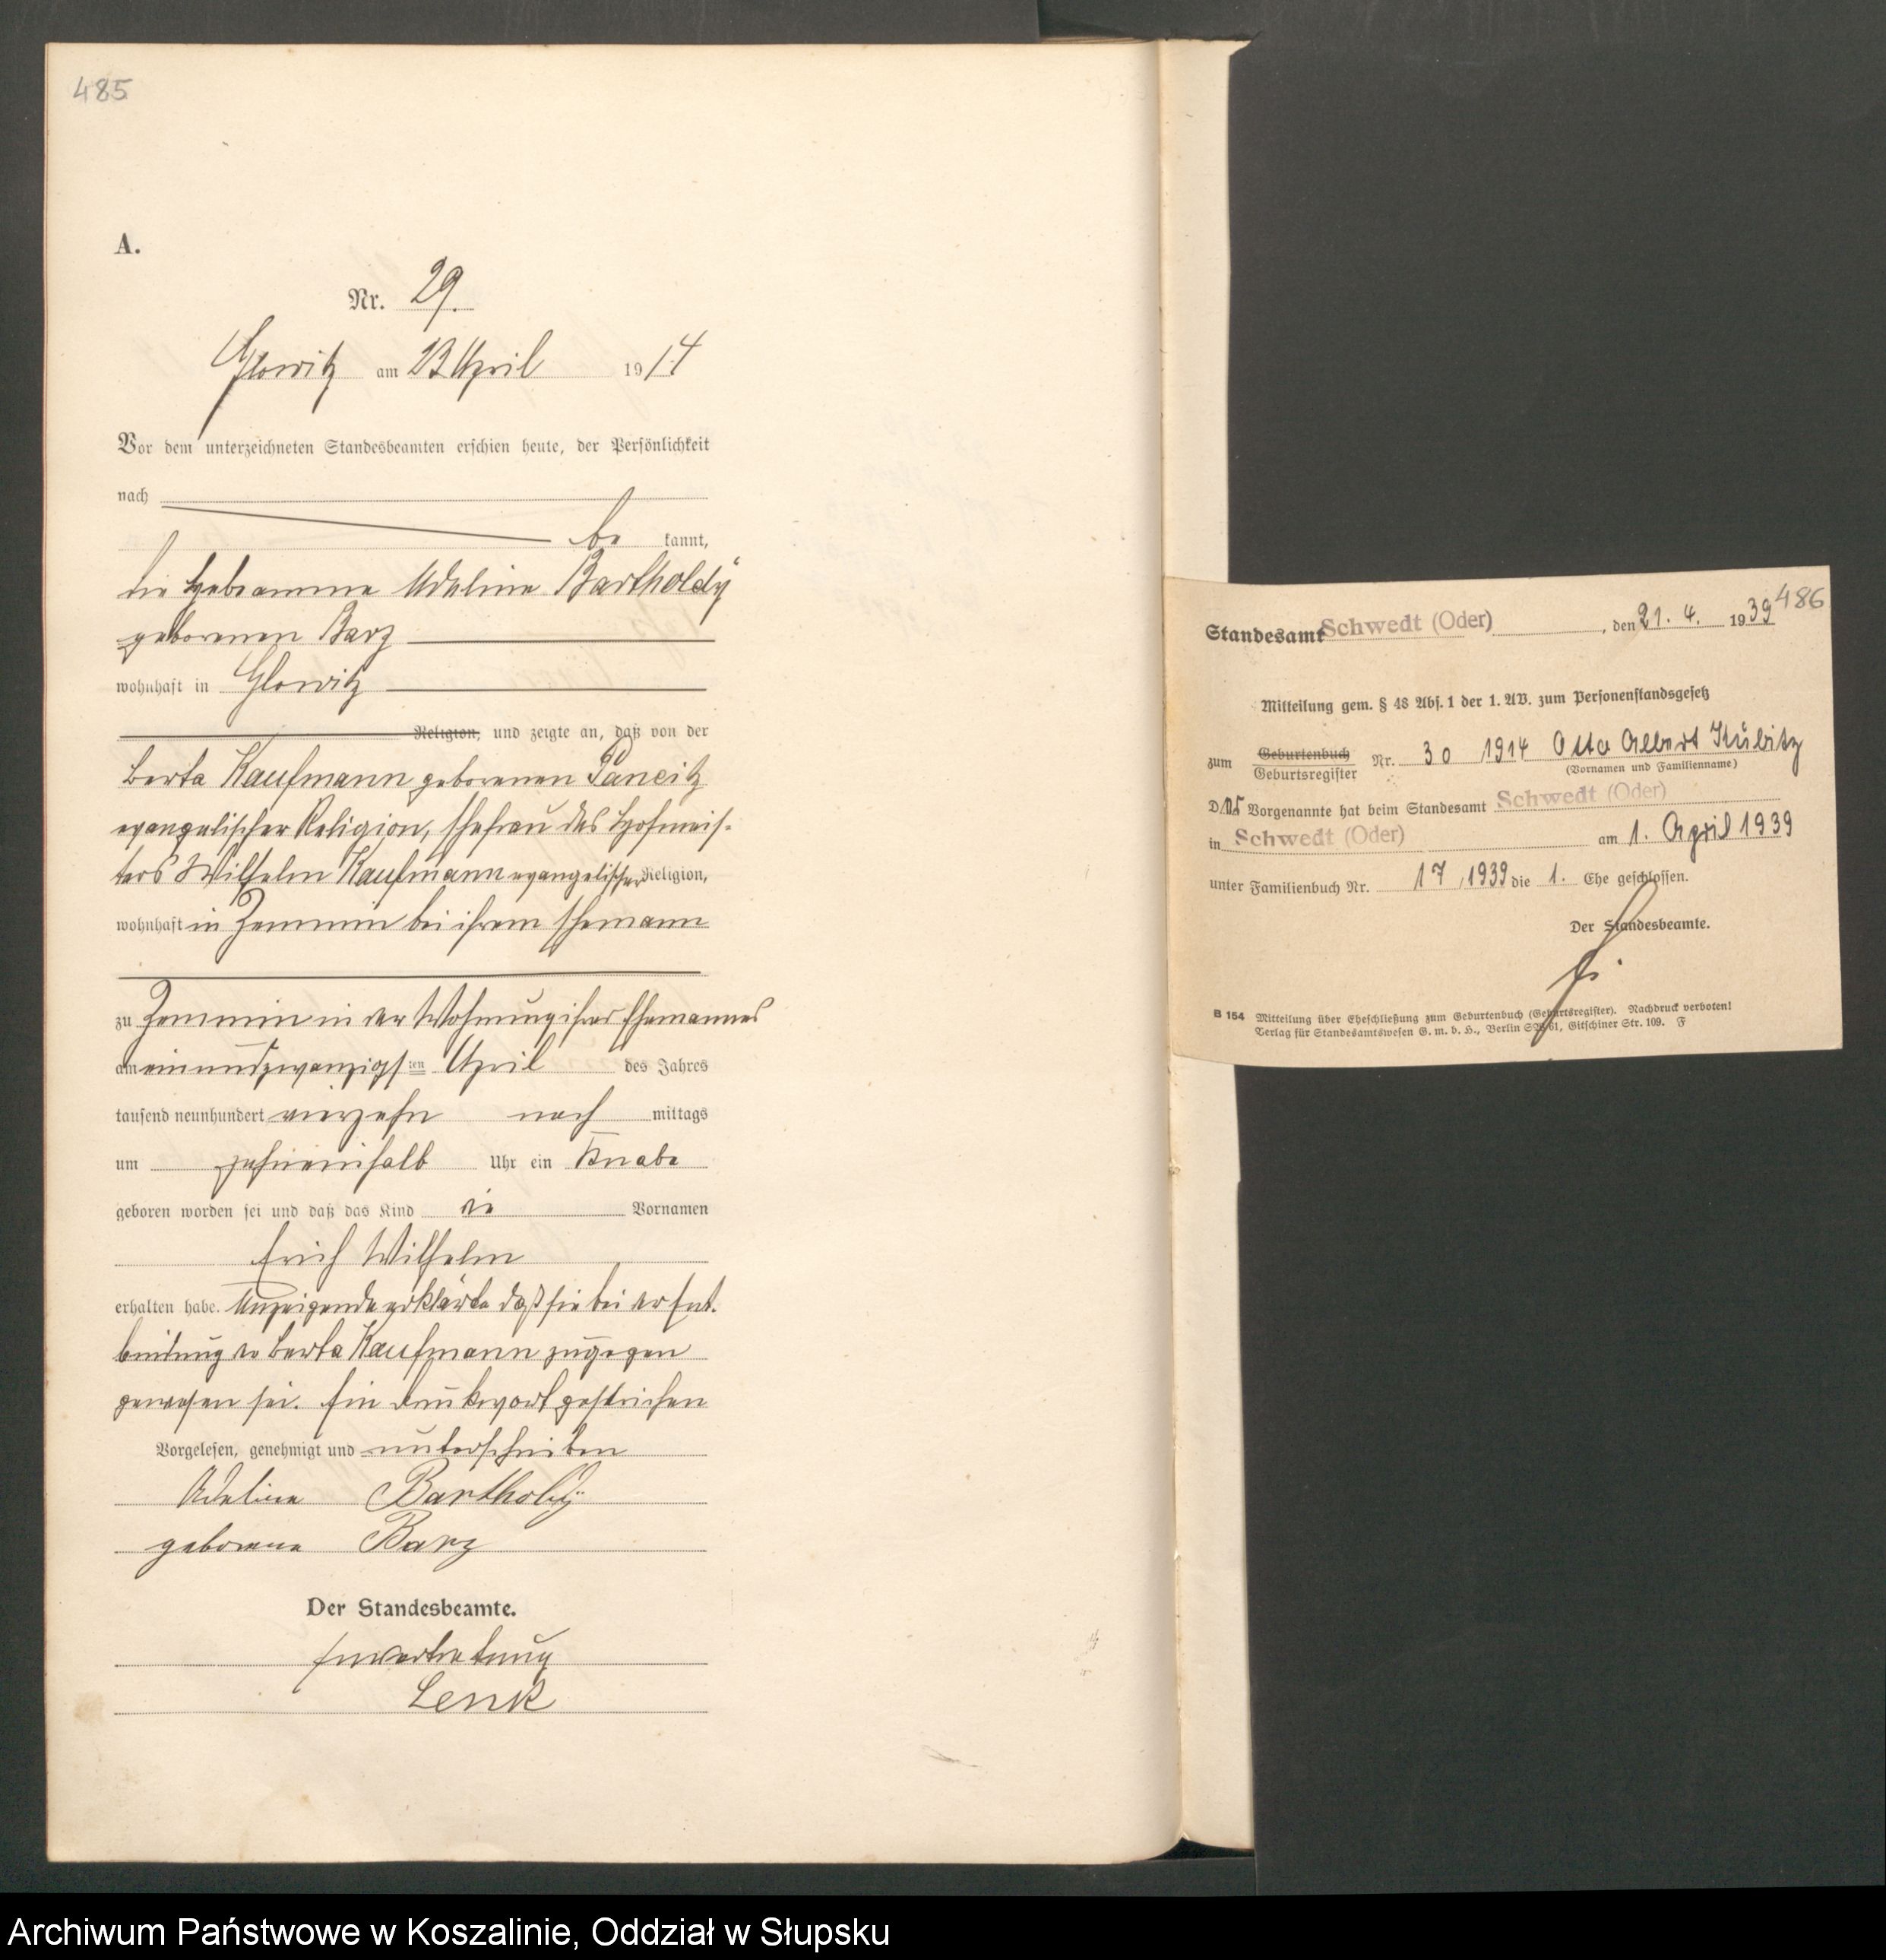 485
A.
Nr. 29.
Glowitz am 23 April 1914
Vor dem unterzeichneten Standesbeamten erschien heute, der Persönlichkeit
nach
be kannt,
die Hebeamme Adeline Bartholdÿ
geborenen Barz
wohnhaft in Glowitz
Religion, und zeigte an, daß von der
Berta Kaufmann geborenen Pancitz
evangelischer Religion, Ehefrau des Hofmeis-
ters Wilhelm Kaufmann evangelischer Religion,
wohnhaft in Zemmin bei ihrem Ehemann
zu Zemmin in der Wohnung ihres Ehemannes
am einundzwanzigsten April des Jahres
tausend neunhundert vierzehn nach mittags
um zehneinhalb Uhr ein Knabe
geboren worden sei und daß das Kind die Vornamen
Erich Wilhelm
erhalten habe. Anzeigende erklärte daß sie bei der Ent-
bindung der Berta Kaufmann zugegen
gewesen sei. Ein Druckwort gestrichen
Vorgelesen, genehmigt und unterschrieben
Adeline Bartholdÿ
geborene Barz
Der Standesbeamte.
In Vertretung
Lenk
486
Standesamt Schwedt (Oder), den 21. 4. 1939
Mitteilung gem. § 48 Abs. 1 der 1. AV. zum Personenstandsgesetz
zum Geburtenbuch Geburtsregister Nr. 30 1914 Otto Albert Kubitz
(Vornamen und Familienname)
Der Vorgenannte hat beim Standesamt Schwedt (Oder)
in Schwedt (Oder) am 1. April 1939
unter Familienbuch Nr. 17, 1939 die 1. Ehe geschlossen.
Der Standesbeamte.
B 154 Mitteilung über Eheschließung zum Geburtenbuch (Geburtsregister). Nachdruck verboten!
Verlag für Standesamtswesen G. m. b. H., Berlin SW 61, Gitschiner Str. 109. F
Archiwum Państwowe w Koszalinie, Oddział w Słupsku